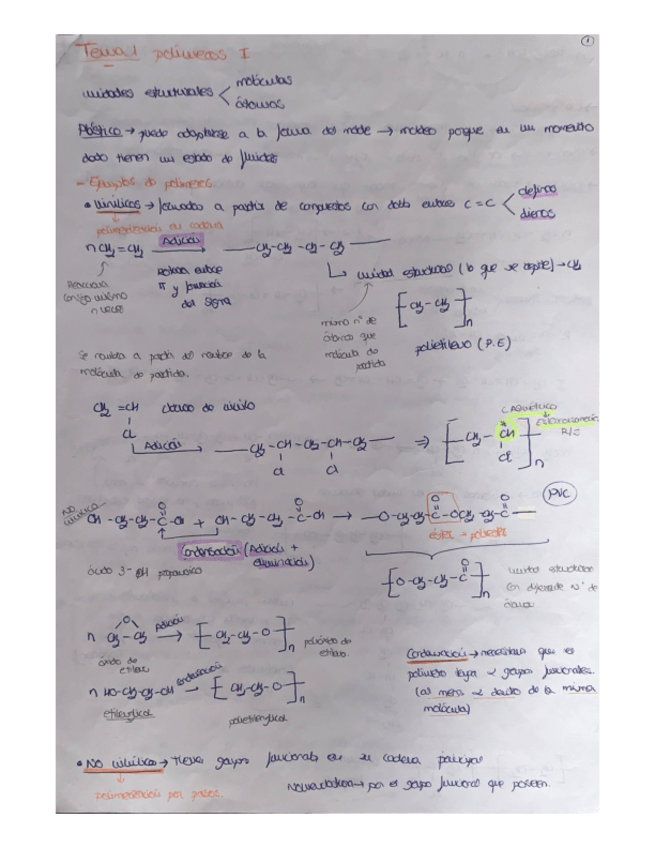 1
Tema 1 polímeros I
unidades estructurales < moléculas
átomos
Plástico → puede adaptarse a la forma del molde → moldeo porque en un momento
dado tienen un estado de fluidez
- Ejemplos de polímeros.
• Vinílicos → formados a partir de compuestos con doble enlace C=C < olefinas
dienos
polimerización en cadena
n CH2=CH2 Adición → —CH2-CH2-CH2-CH2—
Reacciona consigo mismo n veces
Rotura enlace π y formación del sigma
↳ unidad estructural (lo que se repite) → CH2
[CH2-CH2]n
mismo nº de átomos que molécula de partida
polietileno (P.E)
Se nombra a partir del nombre de la
molécula de partida.
CH2=CH cloruro de vinilo
Cl
Adición → —CH2-CH-CH2-CH-CH2—  ⇒ [CH2-CH]n
Cl Cl Cl
C Asimétrico
R/S
PVC
NO vinílico
OH-CH2-CH2-C-OH + OH-CH2-CH2-C-OH → —O-CH2-CH2-C-OCH2-CH2-C—
O O O O
éster → poliéster
Condensación (Adición + eliminación)
ácido 3-OH propanoico
[O-CH2-CH2-C]n
O
unidad estructural con diferente nº de átomos
n CH2-CH2 Adición → [CH2-CH2-O]n
O
óxido de etileno
polióxido de etileno.
n HO-CH2-CH2-OH condensación → [CH2-CH2-O]n
etilenglicol
polietilenglicol
Condensación → necesitamos que el
polímero tenga 2 grupos funcionales.
(al menos 2 dentro de la misma
molécula)
• NO vinílicos → tienen grupos funcionales en su cadena principal
polimerización por pasos.
Nomenclatura → por el grupo funcional que poseen.